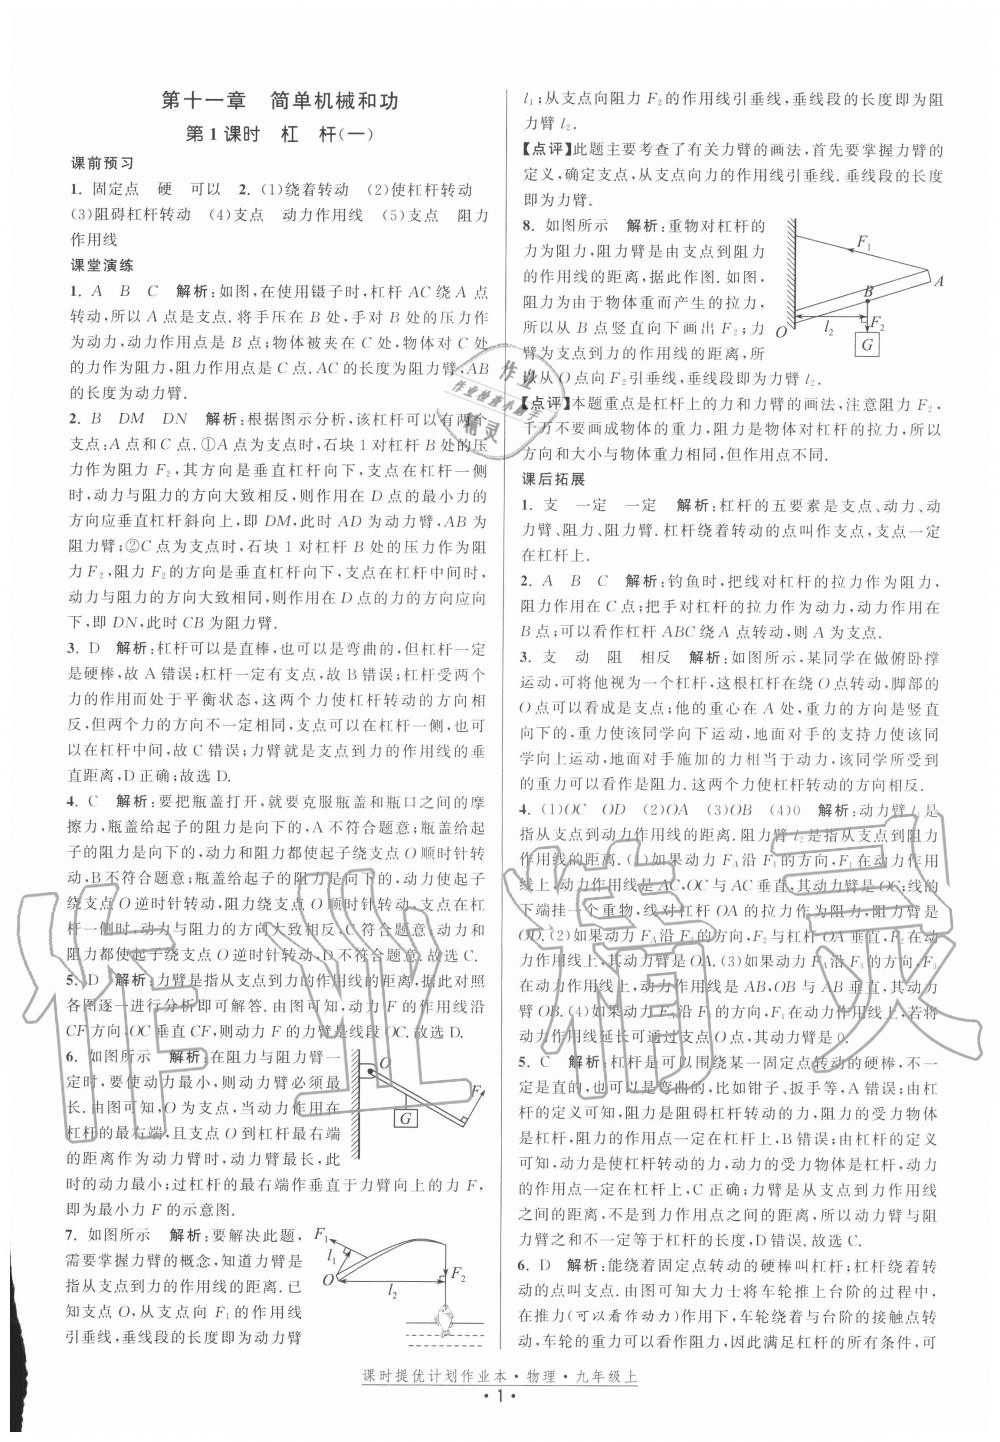 第十一章　简单机械和功
第1课时　杠　杆(一)
课前预习
1. 固定点　硬　可以　2. (1)绕着转动　(2)使杠杆转动
(3)阻碍杠杆转动　(4)支点　动力作用线　(5)支点　阻力
作用线
课堂演练
1. A　B　C　解析:如图,在使用镊子时,杠杆 AC 绕 A 点
转动,所以 A 点是支点.将手压在 B 处,手对 B 处的压力作
为动力,动力作用点是 B 点;物体被夹在 C 处,物体对 C 处
的力作为阻力,阻力作用点是 C 点.AC 的长度为阻力臂,AB
的长度为动力臂.
2. B　DM　DN　解析:根据图示分析,该杠杆可以有两个
支点:A 点和 C 点.①A 点为支点时,石块 1 对杠杆 B 处的压
力作为阻力 F₂,其方向是垂直杠杆向下,支点在杠杆一侧
时,动力与阻力的方向大致相反,所以作用在 D 点的最小力的
方向应垂直杠杆斜向上,即 DM,此时 AD 为动力臂,AB 为
阻力臂;②C 点为支点时,石块 1 对杠杆 B 处的压力作为阻
力 F₂,阻力 F₂ 的方向是垂直杠杆向下,支点在杠杆中间时,
动力与阻力的方向大致相同,所以作用在 D 点的力的方向应向
下,即 DN,此时 CB 为阻力臂.
3. D　解析:杠杆可以是直棒,也可以是弯曲的,但杠杆一定
是硬棒,故 A 错误;杠杆一定有支点,故 B 错误;杠杆受两个
力的作用而处于平衡状态,这两个力使杠杆转动的方向相
反,但两个力的方向不一定相同,支点可以在杠杆一侧,也可
以在杠杆中间,故 C 错误;力臂就是支点到力的作用线的垂
直距离,D 正确;故选 D.
4. C　解析:要把瓶盖打开,就要克服瓶盖和瓶口之间的摩
擦力,瓶盖给起子的阻力是向下的,A 不符合题意;瓶盖给起
子的阻力是向下的,动力和阻力都使起子绕支点 O 顺时针转
动,B 不符合题意;瓶盖给起子的阻力是向下的,动力使起子
绕支点 O 逆时针转动,阻力绕支点 O 顺时针转动,支点在杠
杆一侧时,动力与阻力的方向大致相反,C 符合题意;动力和
阻力都使起子绕支点 O 逆时针转动,D 不符合题意.故选 C.
5. D　解析:力臂是指从支点到力的作用线的距离,据此对照
各图逐一进行分析即可解答.由图可知,动力 F 的作用线沿
CF 方向,OC 垂直 CF,则动力 F 的力臂是线段 OC.故选 D.
6. 如图所示　解析:在阻力与阻力臂一
定时,要使动力最小,则动力臂必须最
长.由图可知,O 为支点,当动力作用在
杠杆的最右端,且支点 O 到杠杆最右端
的距离作为动力臂时,动力臂最长,此
时的动力最小;过杠杆的最右端作垂直于力臂向上的力 F,
即为最小力 F 的示意图.
O
F
G
7. 如图所示　解析:要解决此题,
需要掌握力臂的概念,知道力臂是
指从支点到力的作用线的距离.已
知支点 O,从支点向 F₁ 的作用线
引垂线,垂线段的长度即为动力臂
F₁
l₁
O
l₂
F₂
l₁;从支点向阻力 F₂ 的作用线引垂线,垂线段的长度即为阻
力臂 l₂.
【点评】此题主要考查了有关力臂的画法,首先要掌握力臂的
定义,确定支点,从支点向力的作用线引垂线.垂线段的长度
即为力臂.
8. 如图所示　解析:重物对杠杆的
力为阻力,阻力臂是由支点到阻力
的作用线的距离,据此作图.如图,
阻力为由于物体重而产生的拉力,
所以从 B 点竖直向下画出 F₂;力
臂为支点到力的作用线的距离,所
以从 O 点向 F₂ 引垂线,垂线段即为力臂.
F₁
A
B
O
l₂
F₂
G
【点评】本题重点是杠杆上的力和力臂的画法,注意阻力 F₂,
千万不要画成物体的重力,阻力是物体对杠杆的拉力,所以
方向和大小与物体重力相同,但作用点不同.
课后拓展
1. 支　一定　一定　解析:杠杆的五要素是支点、动力、动
力臂、阻力、阻力臂.杠杆绕着转动的点叫作支点,支点一定
在杠杆上.
2. A　B　C　解析:钓鱼时,把线对杠杆的拉力作为阻力,
阻力作用在 C 点;把手对杠杆的拉力作为动力,动力作用在
B 点;可以看作杠杆 ABC 绕 A 点转动,则 A 为支点.
3. 支　动　阻　相反　解析:如图所示,某同学在做俯卧撑
运动,可将他视为一个杠杆,这根杠杆在绕 O 点转动,脚部的
O 点可以看成是支点;他的重心在 A 处,重力的方向是竖直
向下的,重力使该同学向下运动,地面对手的支持力使该同
学向上运动,地面对手施加的力相当于动力,该同学所受到
的重力可以看作是阻力.这两个力使杠杆转动的方向相反.
4. (1)OC　OD　(2)OA　(3)OB　(4)0　解析:动力臂 l₁ 是
指从支点到动力作用线的距离.阻力臂 l₂ 是指从支点到阻力
作用线的距离.(1)如果动力 F₁沿 F₁ 的方向,F₁ 在动力作用
线上,动力作用线是 AC,OC 与 AC 垂直,其动力臂是 OC;线的
下端挂一个重物,线对杠杆 OA 的拉力作为阻力,阻力臂是
OD.(2)如果动力 F₁沿 F₂ 的方向,F₂ 与杠杆 OA 垂直,F₂
其动力臂是 OA.(3)如果动力 F₁沿 F₃ 的方向,F₃
在动力作用线上,动力作用线是 AB,OB 与 AB 垂直,其动力
臂是 OB.(4)如果动力 F₁沿 F₄ 的方向,F₄ 在动力作用线上,若将
动力作用线延长可通过支点 O 点,其动力臂是 0.
5. C　解析:杠杆是可以围绕某一固定点转动的硬棒,不一
定是直的,也可以是弯曲的,比如钳子、扳手等,A 错误;由杠
杆的定义可知,阻力是阻碍杠杆转动的力,阻力的受力物体
是杠杆,阻力的作用点一定在杠杆上,B 错误;由杠杆的定义
可知,动力是使杠杆转动的力,动力的受力物体是杠杆,动力
的作用点一定在杠杆上,C 正确;力臂是从支点到力的作用线
之间的距离,不是到力作用点之间的距离,所以动力臂与阻
力臂之和不一定等于杠杆的长度,D 错误.故选 C.
6. D　解析:能绕着固定点转动的硬棒叫杠杆;杠杆绕着转
动的点叫支点.由图可知大力士将车轮推上台阶的过程中,
在推力(可以看作动力)作用下,车轮绕着与台阶的接触点转
动,车轮的重力可以看作阻力,因此满足杠杆的所有条件,可
课时提优计划作业本·物理·九年级上
· 1 ·
作业
作业检查小助手
精灵
作业精灵